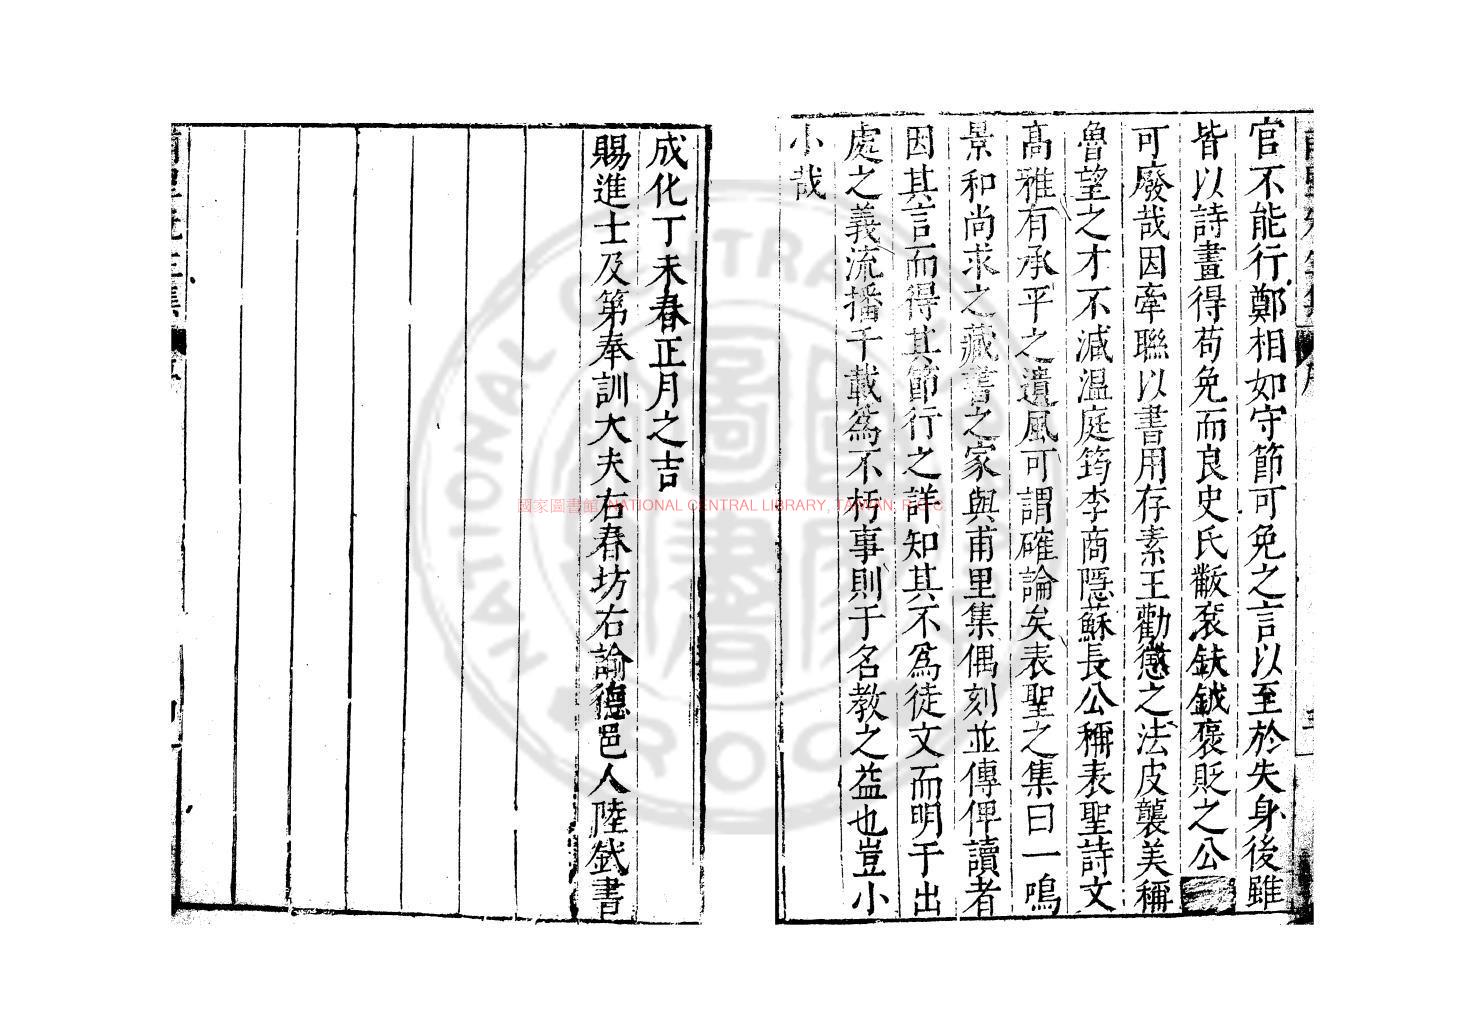 官不能行鄭相如守節可免之言以至於失身後雖
皆以詩畫得苟免而良史氏黻袞鈇鉞褒貶之公
可廢哉因牽聯以書用存素王勸懲之法皮襲美稱
魯望之才不減溫庭筠李商隱蘇長公稱表聖詩文
高雅有承平之遺風可謂確論矣表聖之集曰一鳴
景和尚求之藏書之家與甫里集偶刻並傳俾讀者
因其言而得其節行之詳知其不為徒文而明于出
處之義流播千載為不朽事則于名教之益也豈小
小哉
成化丁未春正月之吉
賜進士及第奉訓大夫右春坊右諭德邑人陸釴書
國家圖書館, NATIONAL CENTRAL LIBRARY, TAIWAN, R.O.C
NATIONAL CENTRAL LIBRARY
ROC
國家圖書館